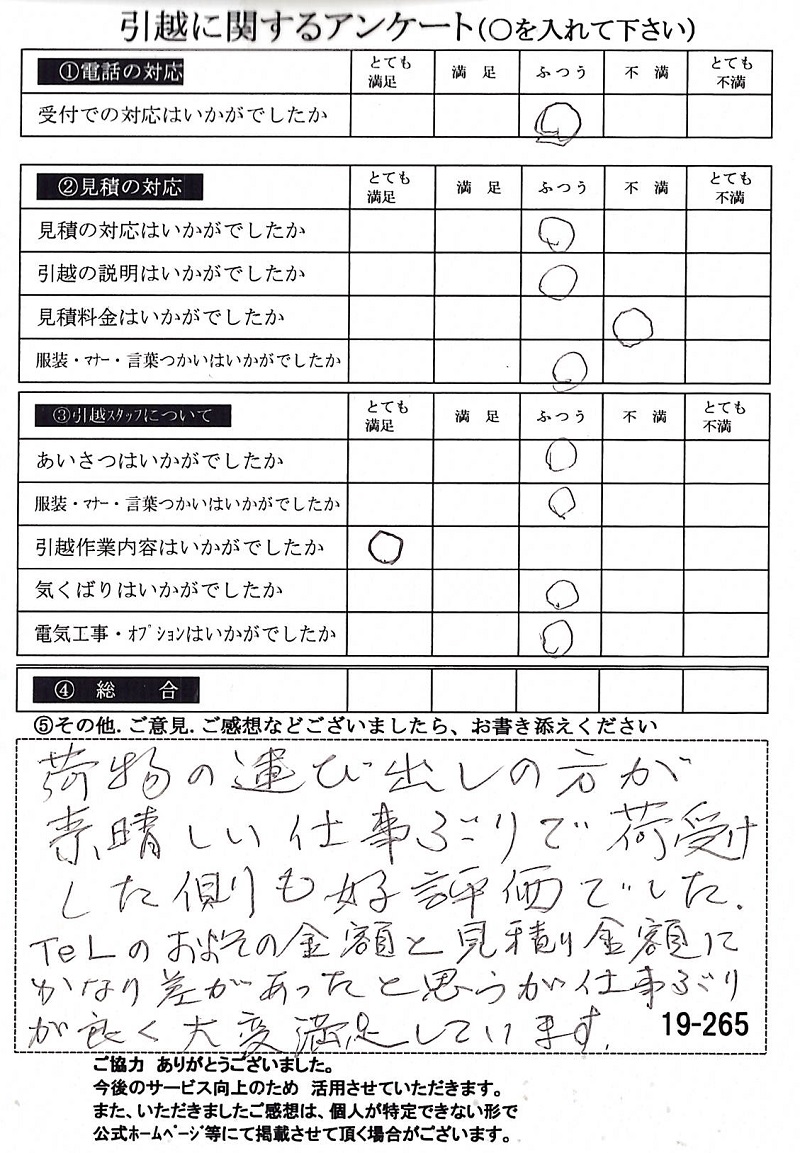 引越に関するアンケート(○を入れて下さい)
①電話の対応 とても満足 満足 ふつう 不満 とても不満
受付での対応はいかがでしたか ○
②見積の対応 とても満足 満足 ふつう 不満 とても不満
見積の対応はいかがでしたか ○
引越の説明はいかがでしたか ○
見積料金はいかがでしたか ○
服装・マナー・言葉つかいはいかがでしたか ○
③引越スタッフについて とても満足 満足 ふつう 不満 とても不満
あいさつはいかがでしたか ○
服装・マナー・言葉つかいはいかがでしたか ○
引越作業内容はいかがでしたか ○
気くばりはいかがでしたか ○
電気工事・オプションはいかがでしたか ○
④ 総 合
⑤その他.ご意見.ご感想などございましたら、お書き添えください
荷物の運び出しの方が
素晴しい仕事ぶりで荷受け
した側りも好評価でした.
TeLのおよその金額と見積り金額に
かなり差があったと思うが仕事ぶり
が良く大変満足しています.
19-265
ご協力 ありがとうございました。
今後のサービス向上のため 活用させていただきます。
また、いただきましたご感想は、個人が特定できない形で
公式ホームページ等にて掲載させて頂く場合がございます。